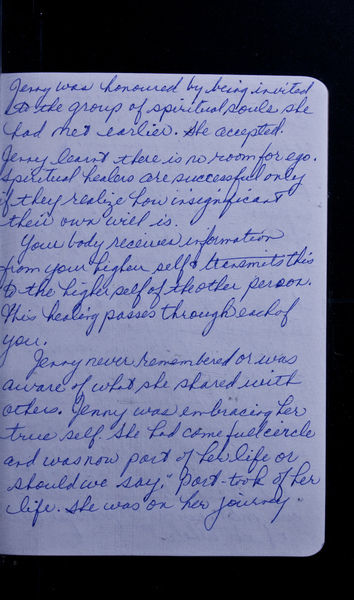 Jenny was honoured by being invited
to the group of spiritual souls she
had met earlier. She accepted.
Jenny learnt there is no room for ego.
Spiritual healers are successful only
if they realize how insignificant
their own will is.
Your body receives information
from your higher self & transmits this
to the higher self of the other person.
This healing passes through each of
you.
Jenny never remembered or was
aware of what she shared with
others. Jenny was embracing her
true self. She had come full circle
and was now part of her life or
should we say, "part-took of her
life. She was on her journey."